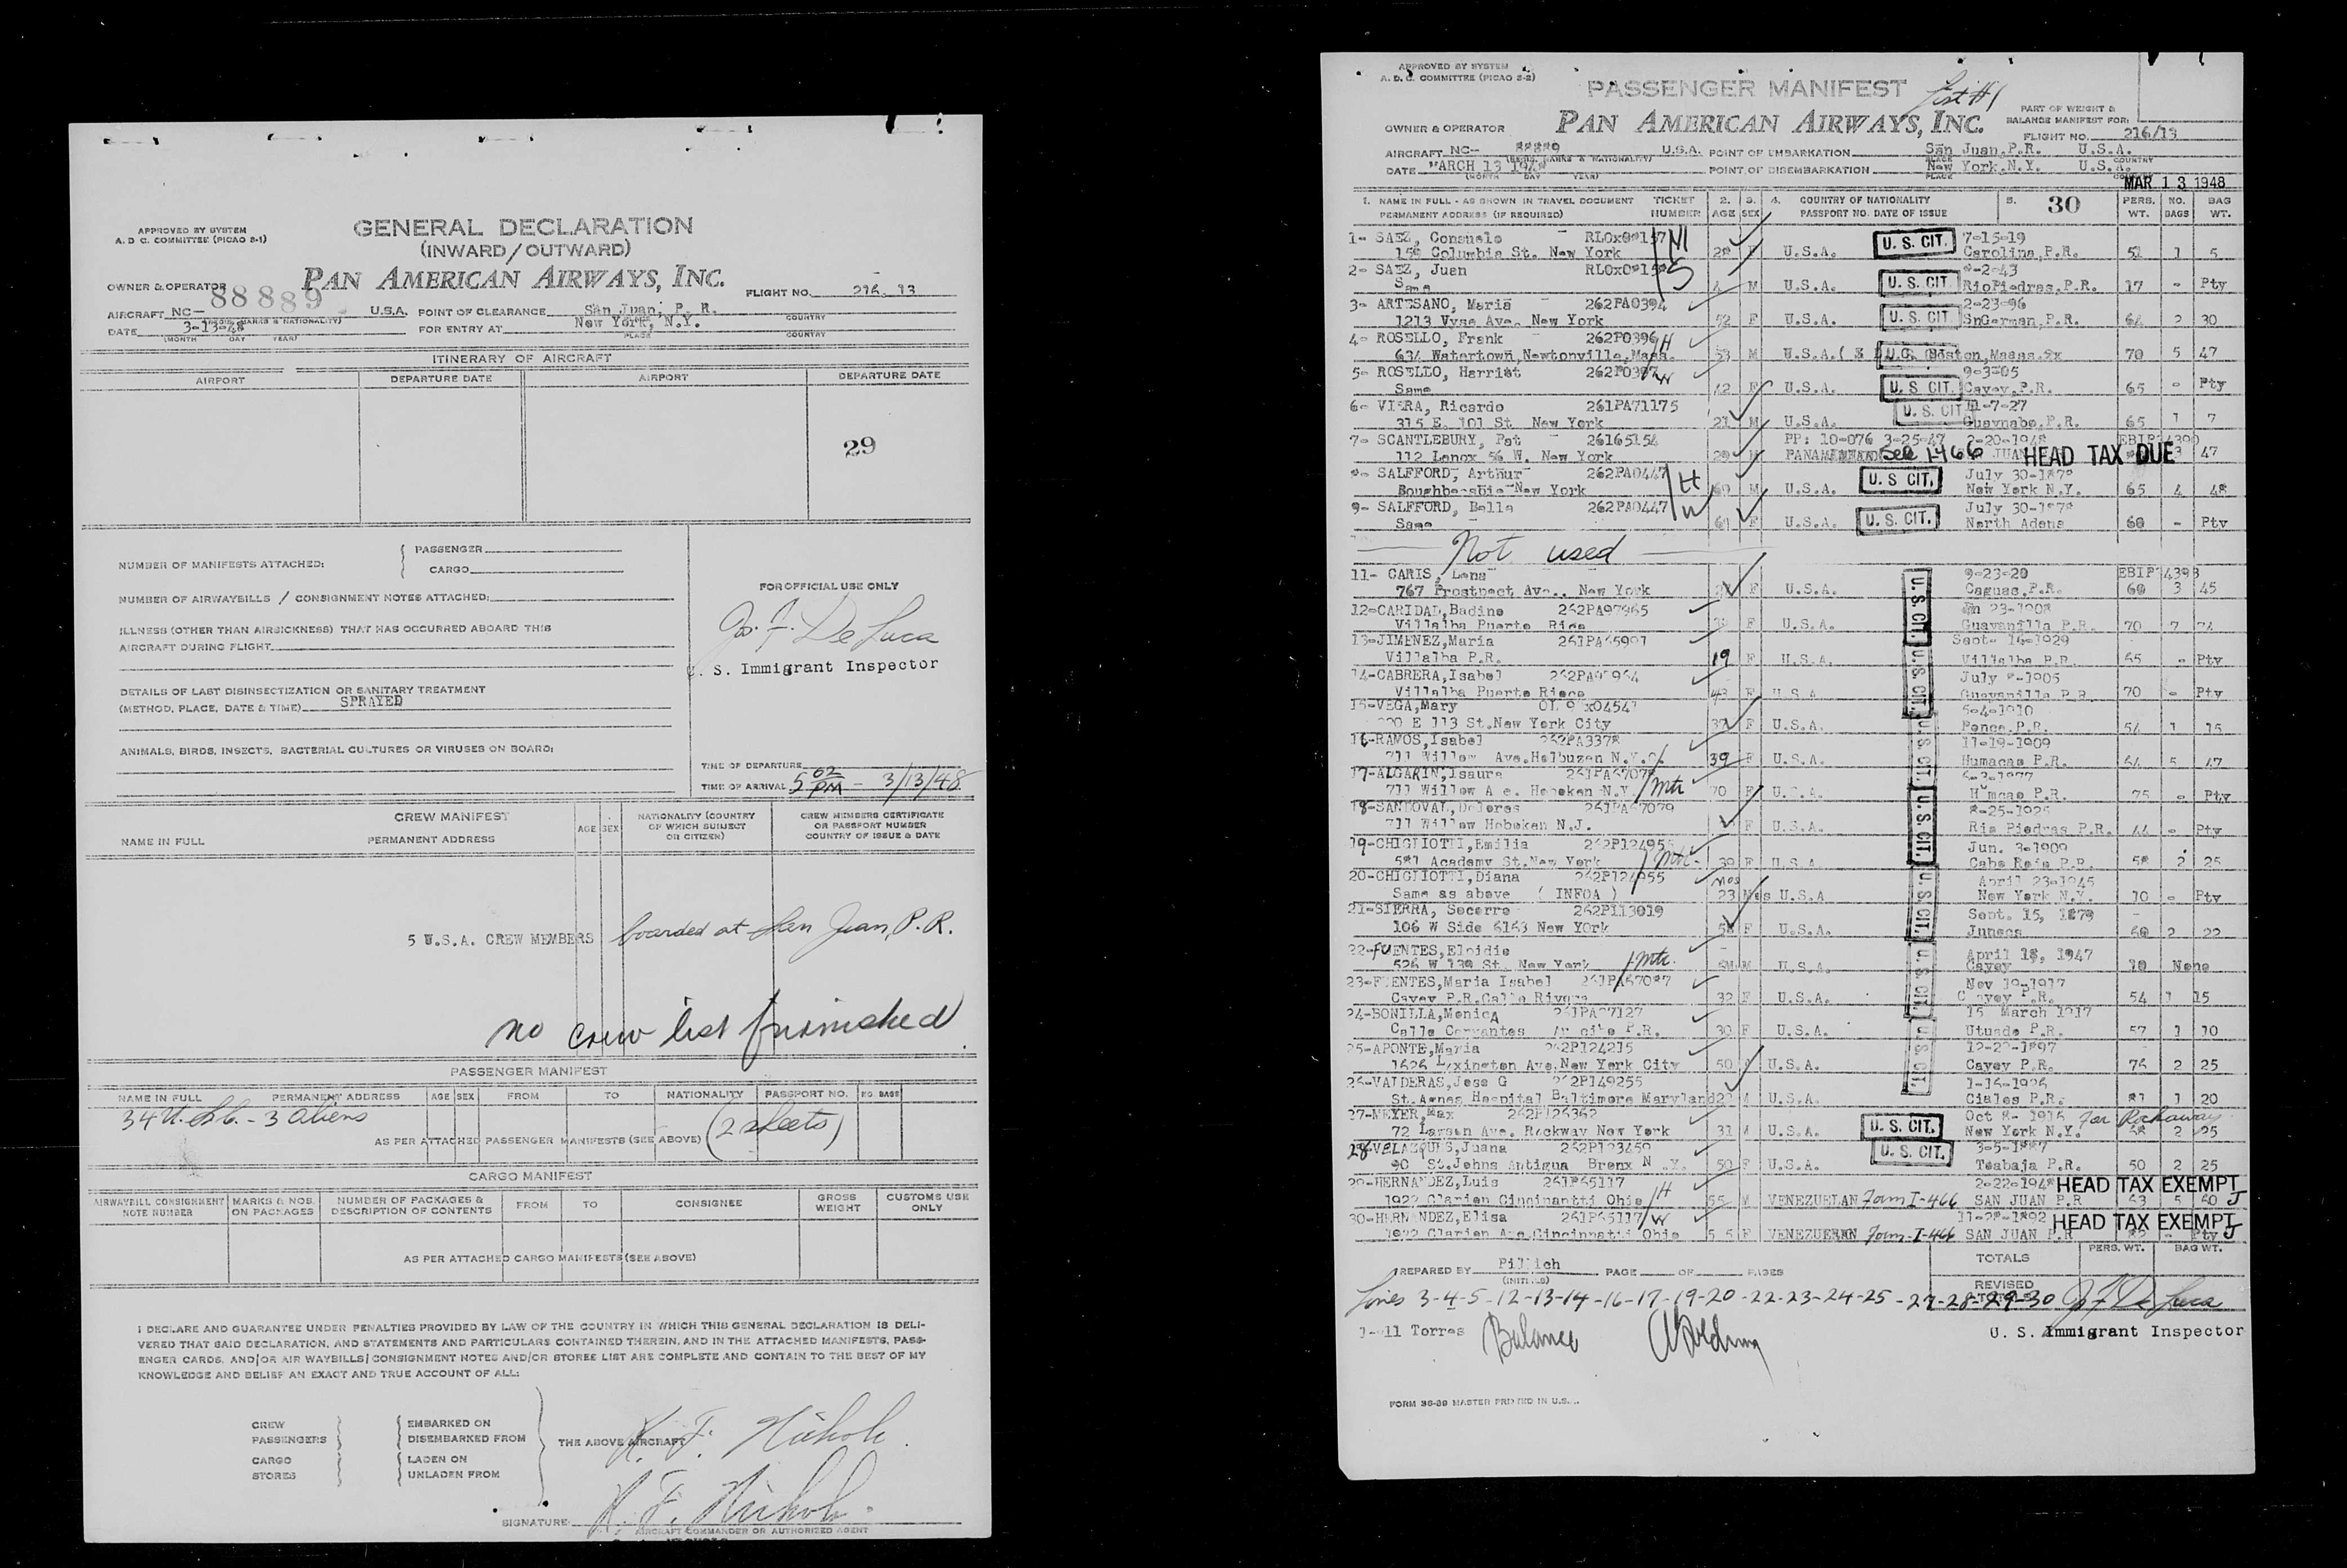 APPROVED BY SYSTEM
A. D C. COMMITTEE (PICAO 2-1)
GENERAL DECLARATION
(INWARD/OUTWARD)
PAN AMERICAN AIRWAYS, INC.
OWNER & OPERATOR
88889
FLIGHT NO. 216 13
AIRCRAFT NC- U.S.A. POINT OF CLEARANCE San Juan, P. R.
DATE 3-13-48 FOR ENTRY AT New York, N.Y.
(MONTH DAY YEAR) PLACE COUNTRY
ITINERARY OF AIRCRAFT
AIRPORT DEPARTURE DATE AIRPORT DEPARTURE DATE
29
NUMBER OF MANIFESTS ATTACHED: PASSENGER
CARGO
NUMBER OF AIRWAYBILLS / CONSIGNMENT NOTES ATTACHED:
ILLNESS (OTHER THAN AIRSICKNESS) THAT HAS OCCURRED ABOARD THIS
AIRCRAFT DURING FLIGHT
DETAILS OF LAST DISINSECTIZATION OR SANITARY TREATMENT
(METHOD, PLACE, DATE & TIME) SPRAYED
ANIMALS, BIRDS, INSECTS, BACTERIAL CULTURES OR VIRUSES ON BOARD:
FOR OFFICIAL USE ONLY
De Luca
. S. Immigrant Inspector
TIME OF DEPARTURE
TIME OF ARRIVAL 5 02 PM - 3/13/48
CREW MANIFEST
NAME IN FULL PERMANENT ADDRESS AGE SEX NATIONALITY (COUNTRY OF WHICH SUBJECT OR CITIZEN) CREW MEMBERS CERTIFICATE OR PASSPORT NUMBER COUNTRY OF ISSUE & DATE
5 U.S.A. CREW MEMBERS boarded at San Juan, P.R.
no crew list furnished
PASSENGER MANIFEST
NAME IN FULL PERMANENT ADDRESS AGE SEX FROM TO NATIONALITY PASSPORT NO. NO BAGS
34 U.S.C. - 3 aliens
AS PER ATTACHED PASSENGER MANIFESTS (SEE ABOVE) (2 sheets)
CARGO MANIFEST
AIRWAYBILL CONSIGNMENT NOTE NUMBER MARKS & NOS. ON PACKAGES NUMBER OF PACKAGES & DESCRIPTION OF CONTENTS FROM TO CONSIGNEE GROSS WEIGHT CUSTOMS USE ONLY
AS PER ATTACHED CARGO MANIFESTS (SEE ABOVE)
I DECLARE AND GUARANTEE UNDER PENALTIES PROVIDED BY LAW OF THE COUNTRY IN WHICH THIS GENERAL DECLARATION IS DELI-
VERED THAT SAID DECLARATION, AND STATEMENTS AND PARTICULARS CONTAINED THEREIN, AND IN THE ATTACHED MANIFESTS, PASS-
ENGER CARDS, AND/OR AIR WAYBILLS/CONSIGNMENT NOTES AND/OR STORES LIST ARE COMPLETE AND CONTAIN TO THE BEST OF MY
KNOWLEDGE AND BELIEF AN EXACT AND TRUE ACCOUNT OF ALL:
CREW EMBARKED ON
PASSENGERS DISEMBARKED FROM
THE ABOVE AIRCRAFT
CARGO LADEN ON
STORES UNLADEN FROM
SIGNATURE
AIRCRAFT COMMANDER OR AUTHORIZED AGENT
APPROVED BY SYSTEM
A. D. C. COMMITTEE (PICAO 2-2)
PASSENGER MANIFEST
List #1
PART OF WEIGHT &
BALANCE MANIFEST FOR:
OWNER & OPERATOR PAN AMERICAN AIRWAYS, INC.
FLIGHT NO. 216/13
AIRCRAFT NC- 88889 U.S.A. POINT OF EMBARKATION San Juan, P.R. U.S.A.
DATE MARCH 13 1948 POINT OF DISEMBARKATION New York, N.Y. U.S.A.
MAR 13 1948
1. NAME IN FULL - AS SHOWN IN TRAVEL DOCUMENT TICKET 2. 3. 4. COUNTRY OF NATIONALITY 5. 30 PERS. NO. BAG
PERMANENT ADDRESS (IF REQUIRED) NUMBER AGE SEX PASSPORT NO. DATE OF ISSUE WT. BAGS WT.
1- SAEZ, Consuelo U. S. CIT. 7-15-19
Columbia St. New York F U.S.A. Carolina, P.R. 51 1 5
2- SAEZ, Juan
Same 4 M U.S.A. U. S. CIT. RioPiedras, P.R. 17 - Pty
3- ARTESANO, Maria 262PA0394 2-23-96
1213 Vyse Ave. New York 52 F U.S.A. U. S. CIT. SnGerman, P.R. 64 2 30
4- ROSELLO, Frank 262P0396 H
634 Watertown, Newtonville, Mass. 53 M U.S.A. Boston, Mass. 70 5 47
5- ROSELLO, Harriet 262P0397 W 9-3-05
Same 42 F U.S.A. U. S. CIT. Cayey, P.R. 65 - Pty
6- VIERA, Ricardo 261PA71175 U. S. CIT. -7-27
315 E. 101 St New York 21 M U.S.A. Guaynabo, P.R. 65 1 7
7- SCANTLEBURY, Pat 26165154 PP: 10-076 3-25-47 2-20-1948
112 Lenox 56 W. New York See I-466 HEAD TAX DUE 3 47
SALFFORD, Arthur 262PA0447 H U. S CIT. July 30-1878
New York M U.S.A. New York N.Y. 65 4 48
9- SALFFORD, Bella 262PA0447 W July 30-1878
Same F U.S.A. U. S. CIT. North Adens 60 - Pty
Not used
11- CARIS, Lena 9-23-20
767 Prostpect Ave., New York F U.S.A. Caguas, P.R. 60 3 45
12-CARIDAD, Badine 262PA97965 23-1908
Villalba Puerto Rico F U.S.A. Guayanilla P.R. 70 7 74
13-JIMENEZ, Maria 261PA65991 Sept- 16-1929
Villalba P.R. 19 F U.S.A. Villalba P.R. 65 - Pty
14-CABRERA, Isabel July 8-1905
Villalba Puerto Rico 43 F U.S.A. Guayanilla P.R. 70 - Pty
15-VEGA, Mary 5-4-1910
E 113 St. New York City 37 F U.S.A. Ponce, P.R. 54 1 15
16-RAMOS, Isabel 262PA3378 11-19-1909
711 Willow Ave. 39 F U.S.A. Humacao P.R. 64 5 47
17-ALGARIN, Isaura
711 Willow A e. Hoboken N.Y. Mtr 70 F U.S.A. H mcao P.R. 75 - Pty
18-SANDOVAL, Dolores 261PA67079 8-25-1926
711 Willow Hoboken N.J. F U.S.A. Rio Piedras P.R. 44 - Pty
19-CHIGLIOTTI, Emilia Jun. 3-1909
581 Academy St. New York 39 F U.S.A. Cabo Rojo P.R. 58 2 25
20-CHIGLIOTTI, Diana 262P124955 mos April 23-1945
Same as above ( INFOA ) 23 U.S.A New York N.Y. 10 - Pty
21-SIERRA, Socorro 262P113019 Sept. 15, 1879
106 W Side 6163 New York F U.S.A. Juncos 60 2 22
22-FUENTES, Eloidie April 18, 1947
New York Mtr M U.S.A. Cayey 10 None
23-FUENTES, Maria Isabel 261PA67087 Nov 19-1917
Cayey P.R. Calle Rivera 32 F U.S.A. C yey P.R. 54 1 15
24-BONILLA, Monica 15 March 1917
Calle Cervantes P.R. 30 F U.S.A. Utuado P.R. 57 1 10
25-APONTE, Maria 262P124215 12-22-1897
1626 Lexington Ave. New York City 50 U.S.A. Cayey P.R. 76 2 25
26-VALDERAS, Jose G 262P149255 1-16-1926
St. Agnes Hospital Baltimore Maryland 22 M U.S.A. Ciales P.R. 81 1 20
27-MEYER, Max Oct 8- 1916 Far Rockaway
72 Larsen Ave. Rockway New York 31 M U.S.A. U. S. CIT. New York N.Y. 2 25
28-VELAZQUES, Juana 262P123459 3-5-1887
90 St. Johns Antigua Bronx N .Y. 50 F U.S.A. U. S. CIT. Toabaja P.R. 50 2 25
29-HERNANDEZ, Luis 261P65117 H 2-22-1948 HEAD TAX EXEMPT
1922 Clarion Cincinantti Ohio 55 M VENEZUELAN Form I-466 SAN JUAN P.R 63 5 60 J
30-HERNANDEZ, Elisa 261P65117 W 11-28-1892 HEAD TAX EXEMPT
1922 Clarion Ave. Cincinnatti Ohio 55 F VENEZUELAN Form-I-466 SAN JUAN P.R - Pty J
PREPARED BY Pillich PAGE OF PAGES TOTALS PERS. WT. BAG WT.
(INITIALS)
REVISED
Lines 3-4-5-12-13-14-16-17-19-20-22-23-24-25-27-28-29-30 De Luca
1-11 Torres Balance U. S. Immigrant Inspector
FORM 36-89 MASTER PRINTED IN U.S.